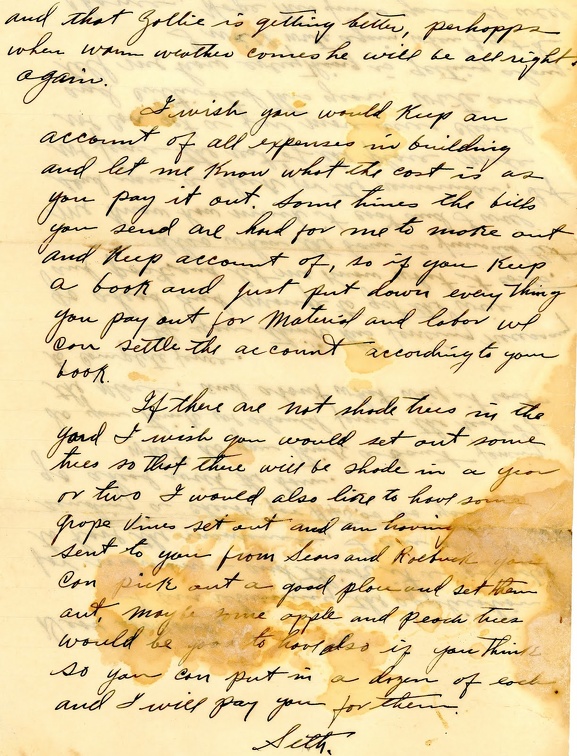 and that Zollie is getting better, perhopps
when warm weather comes he will be all right
again.
I wish you would Keep an
account of all expenses in building
and let me Know what the cost is as
you pay it out. Some times the bills
you send are hard for me to make out
and Keep account of, so if you Keep
a book and just put down every thing
you pay out for Material and labor we
can settle the account according to your
book.
If there are not shade trees in the
yard I wish you would set out some
trees so that there will be shade in a year
or two I would also like to have some
grape vines set out and am having
sent to you from Sears and Roebuck you
can pick out a good place and set them
out, maybe some apple and peach trees
would be good to have also if you think
so you can put in a dozen of each
and I will pay you for them.
Seth.